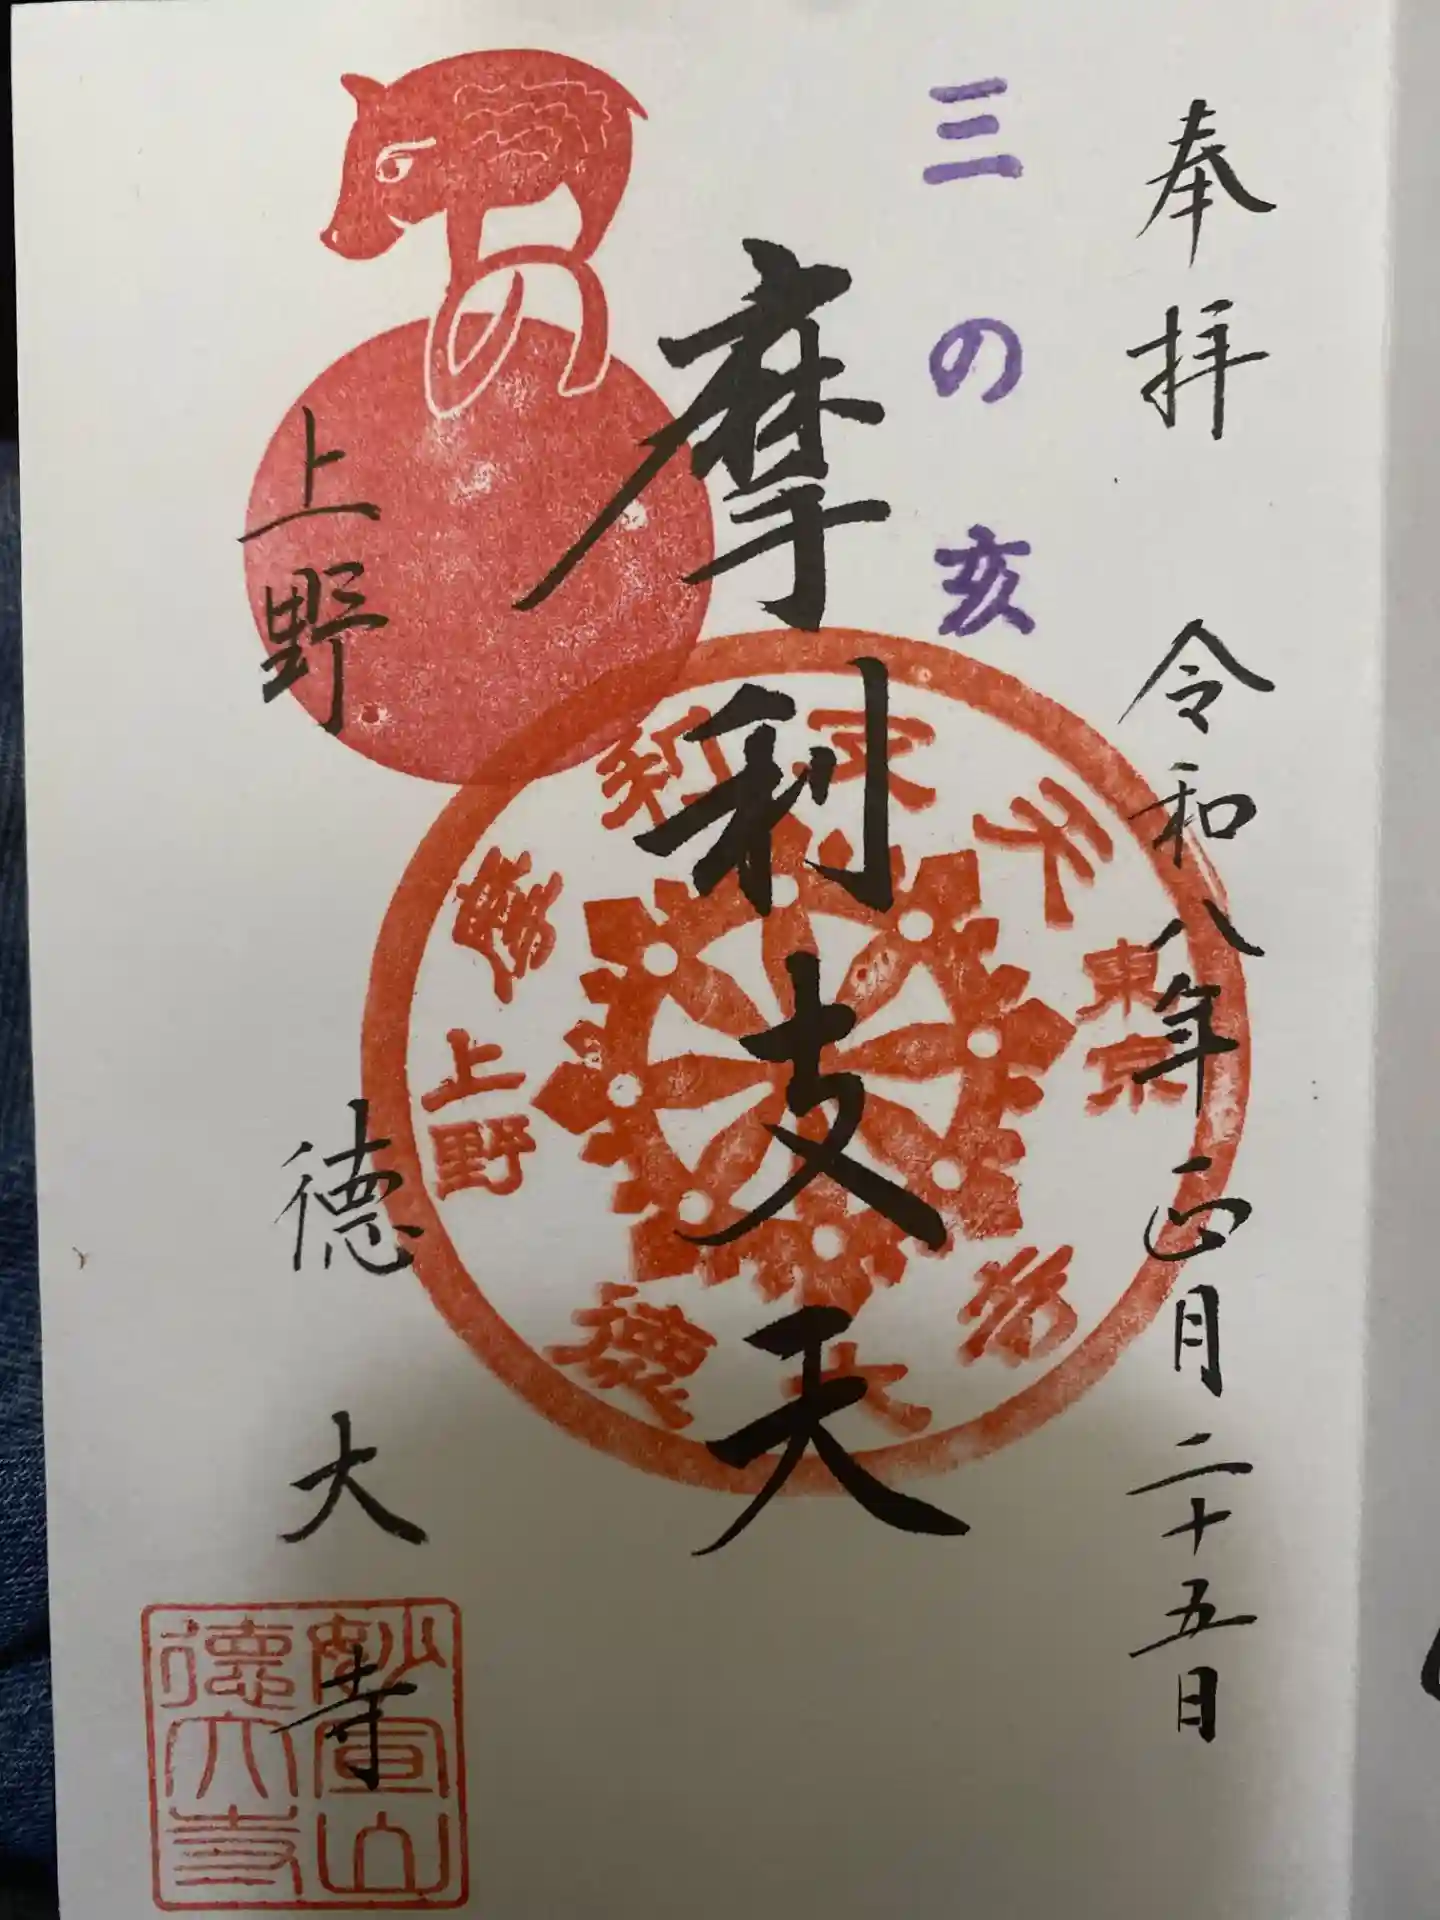 奉拝 令和八年正月二十五日
三の亥
摩利支天
上野 徳大寺
摩利支天
東京
上野
徳大寺
妙宣山
徳大寺